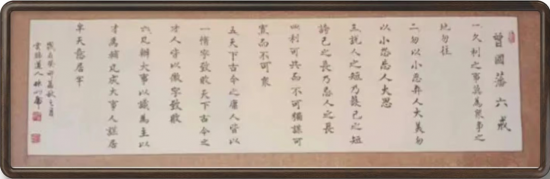 曾國藩六戒
一久利之事莫為眾爭之
地勿往
二勿以小惡弃人大美勿
以小怨忘人大恩
三說人之短乃護己之短
誇己之長乃忌人之長
四利可共而不可獨謀可
寡而不可眾
五天下古今之庸人皆以
一惰字致敗天下古今之
才人皆以傲字致敗
六凡辦大事以識為主以
才為輔凡成大事人謀居
半天意居半